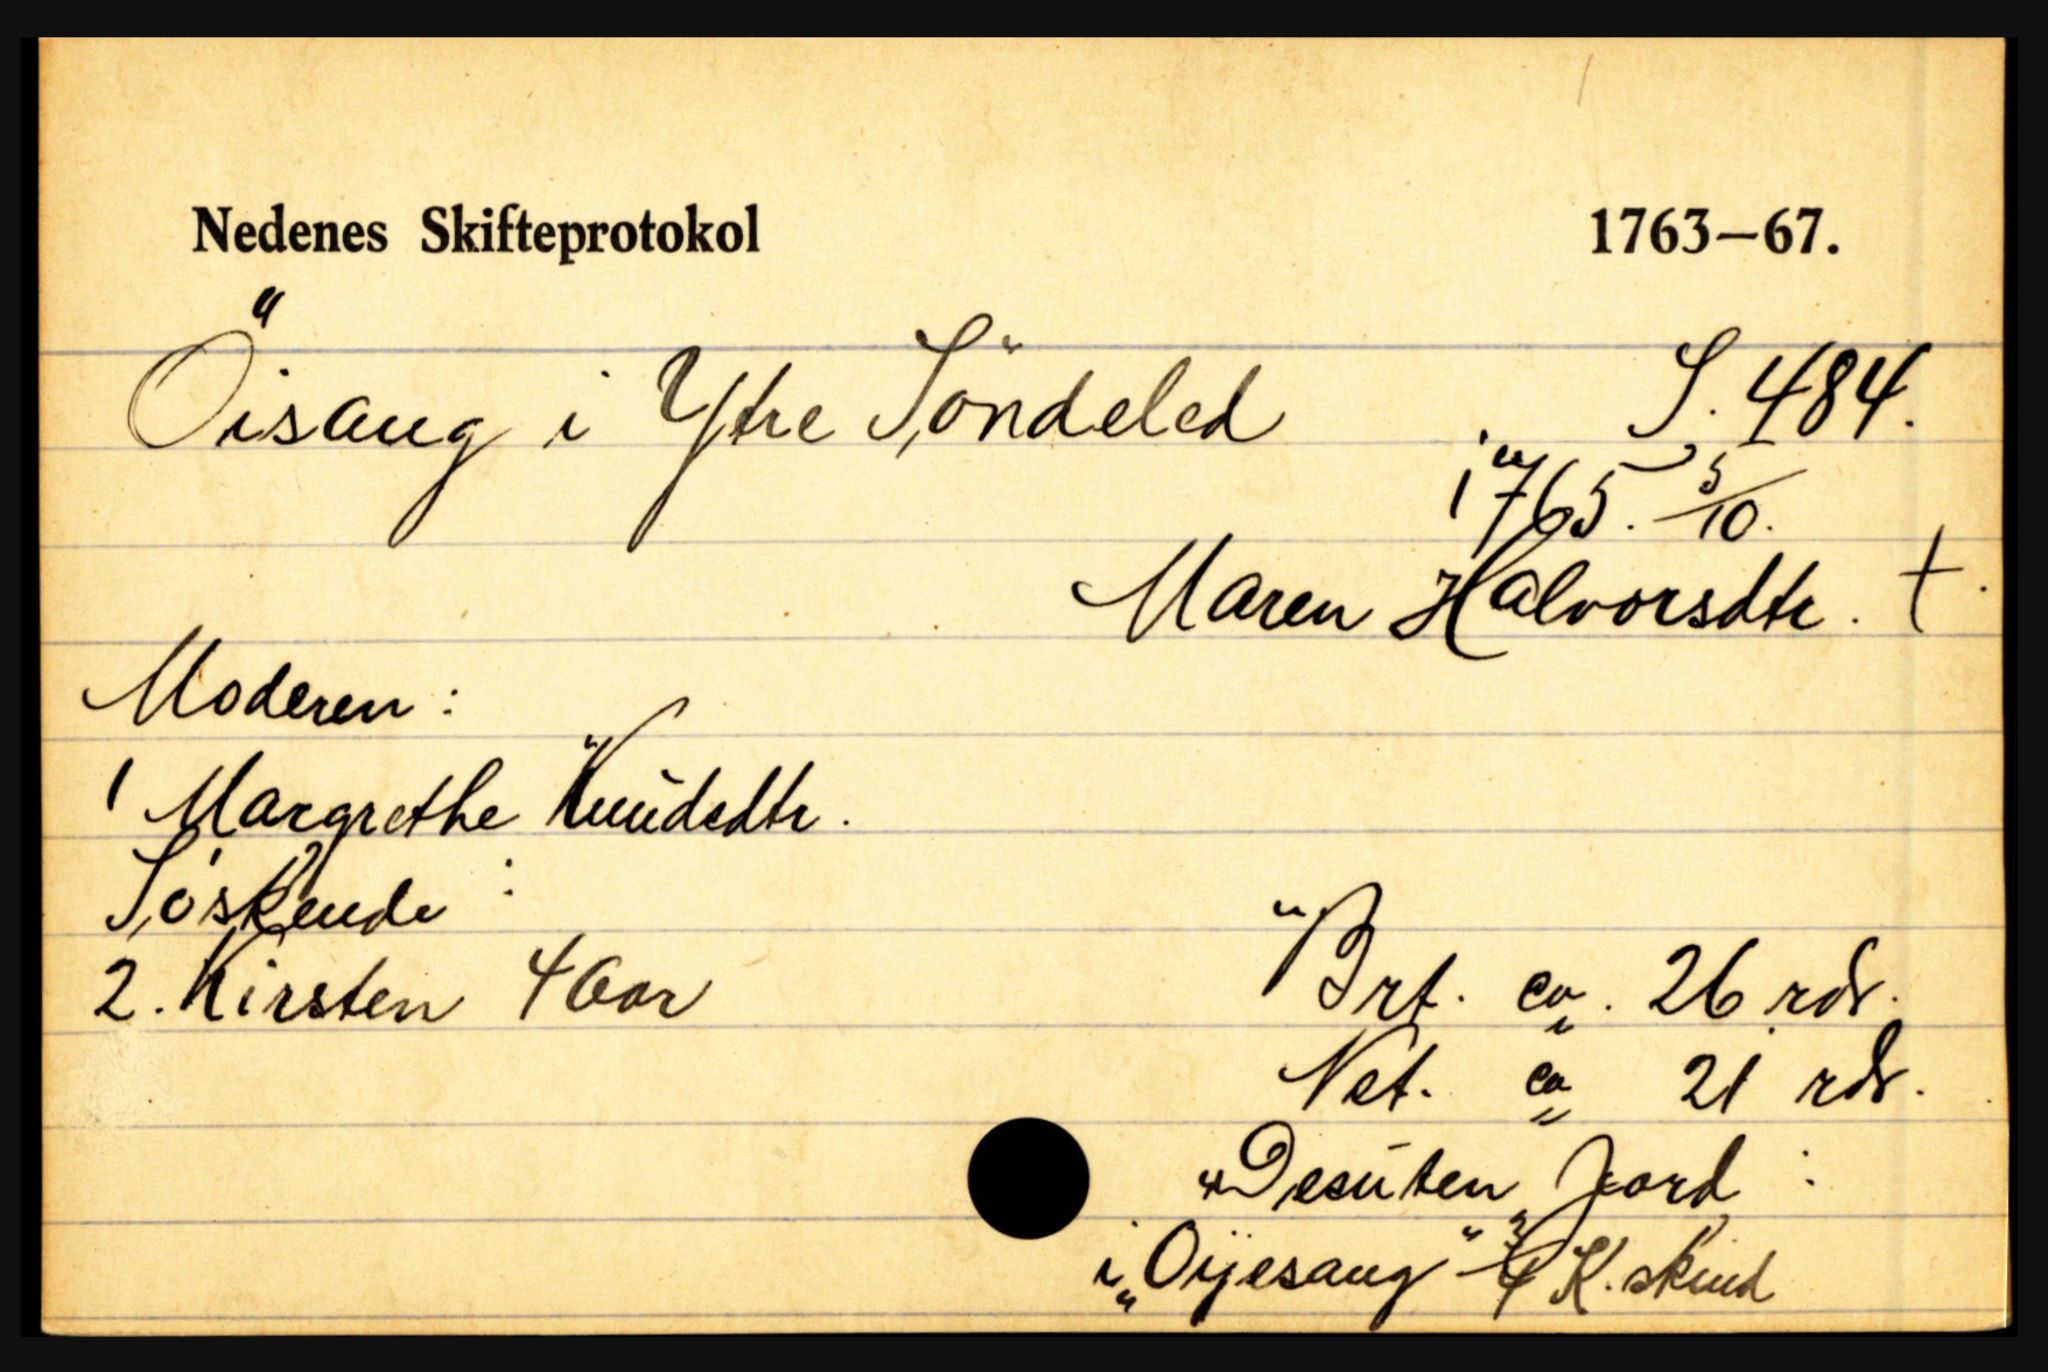 Nedenes Skifteprotokol 1763—67.
Öisang i Ytre Söndeled S. 484.
1765. 5/10.
Maren Halvorsdtr. †.
Moderen:
1 Margrethe Knudsdtr.
Söskende:
2. Kirsten 4 Aar
Brt. ca. 26 rdr.
Net. ca 21 rdr.
Desuten Jord:
i „Oijesang" 3/4 K. skind